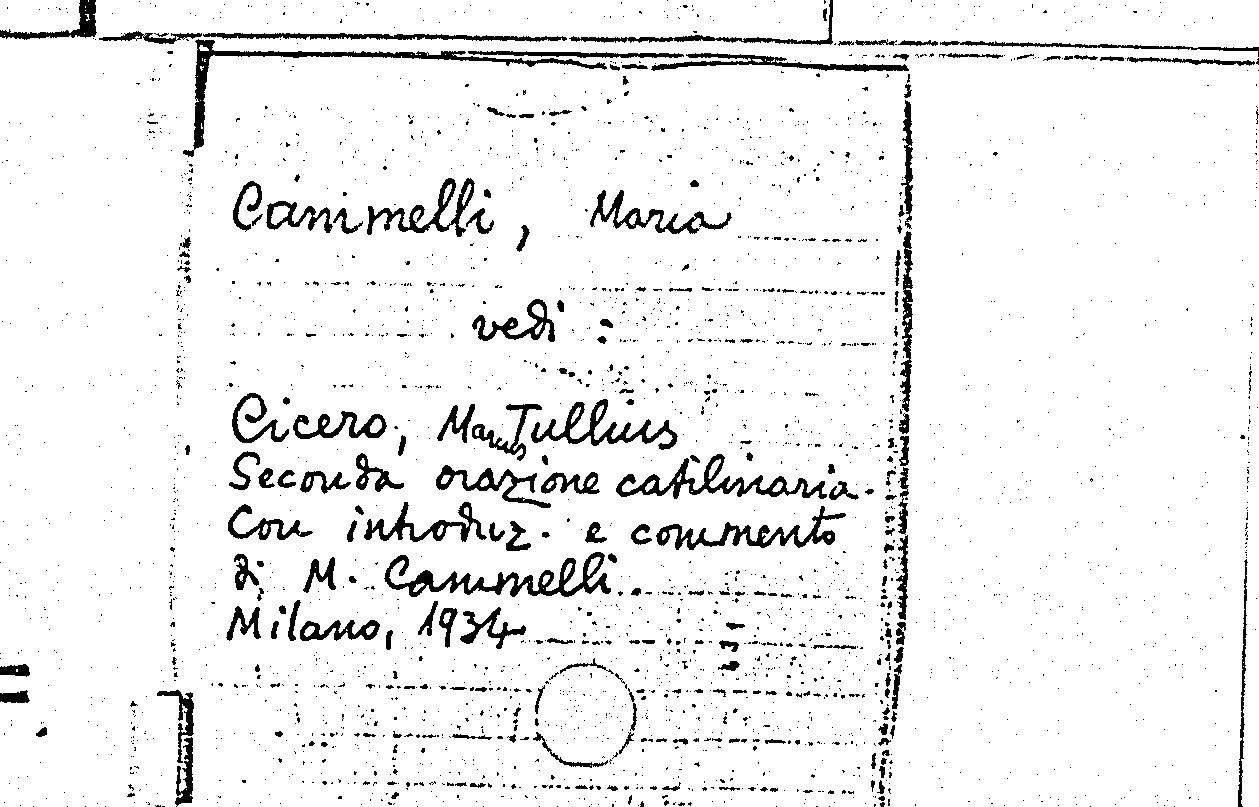 Cammelli, Maria
vedi :
Cicero, Marcus Tullius
Seconda orazione catilinaria.
Con introduz. e commento
di M. Cammelli.
Milano, 1934